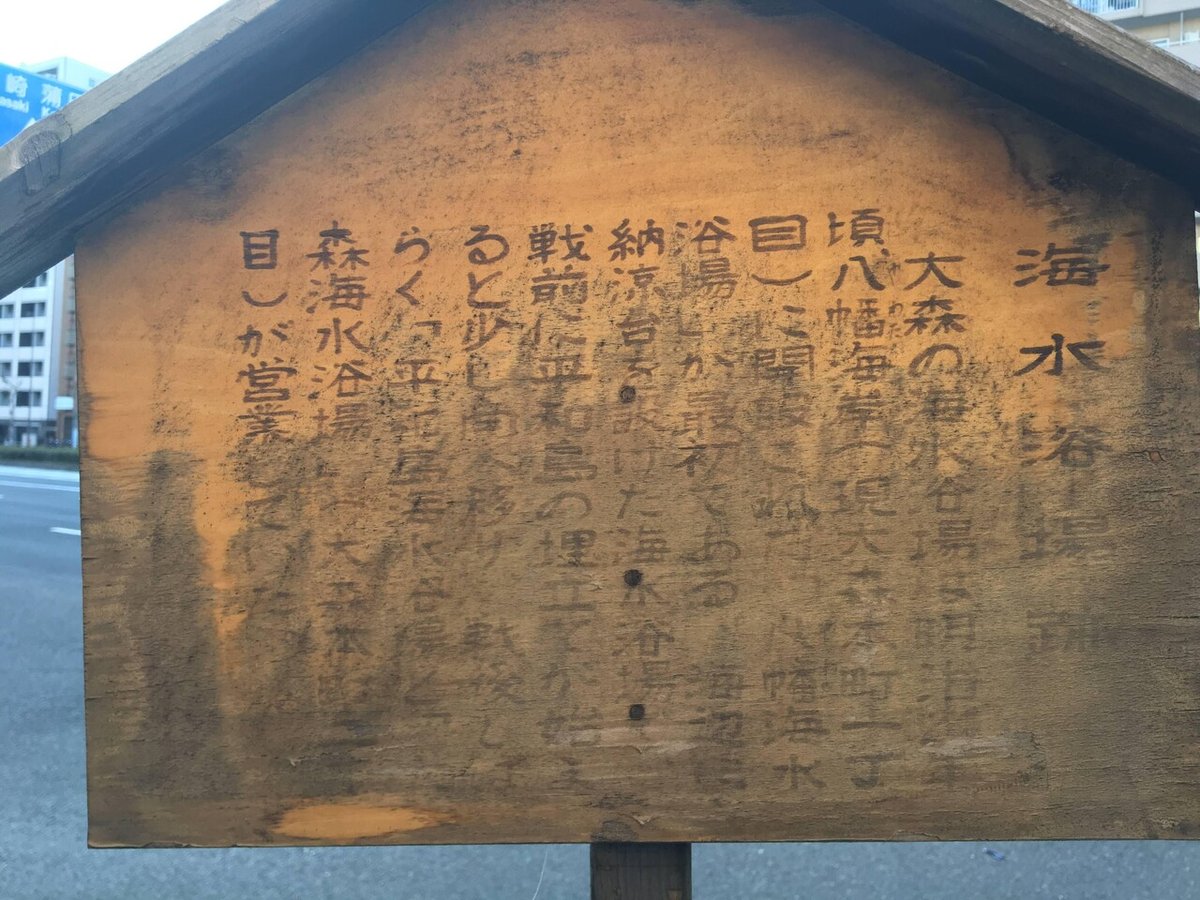 海水浴場跡
大森の海水浴場は明治 年
頃八幡海岸(現大森本町一丁
目)に開設され 八幡海水
浴場 が最初である。海辺に
納涼台を設けた海水浴場で
戦前に平和島の埋立てが始ま
ると少し南へ移り、戦後しば
らく「平和島海水浴場」と「
森海水浴場」(大森本町二
目)が営業していた。
崎 蒲